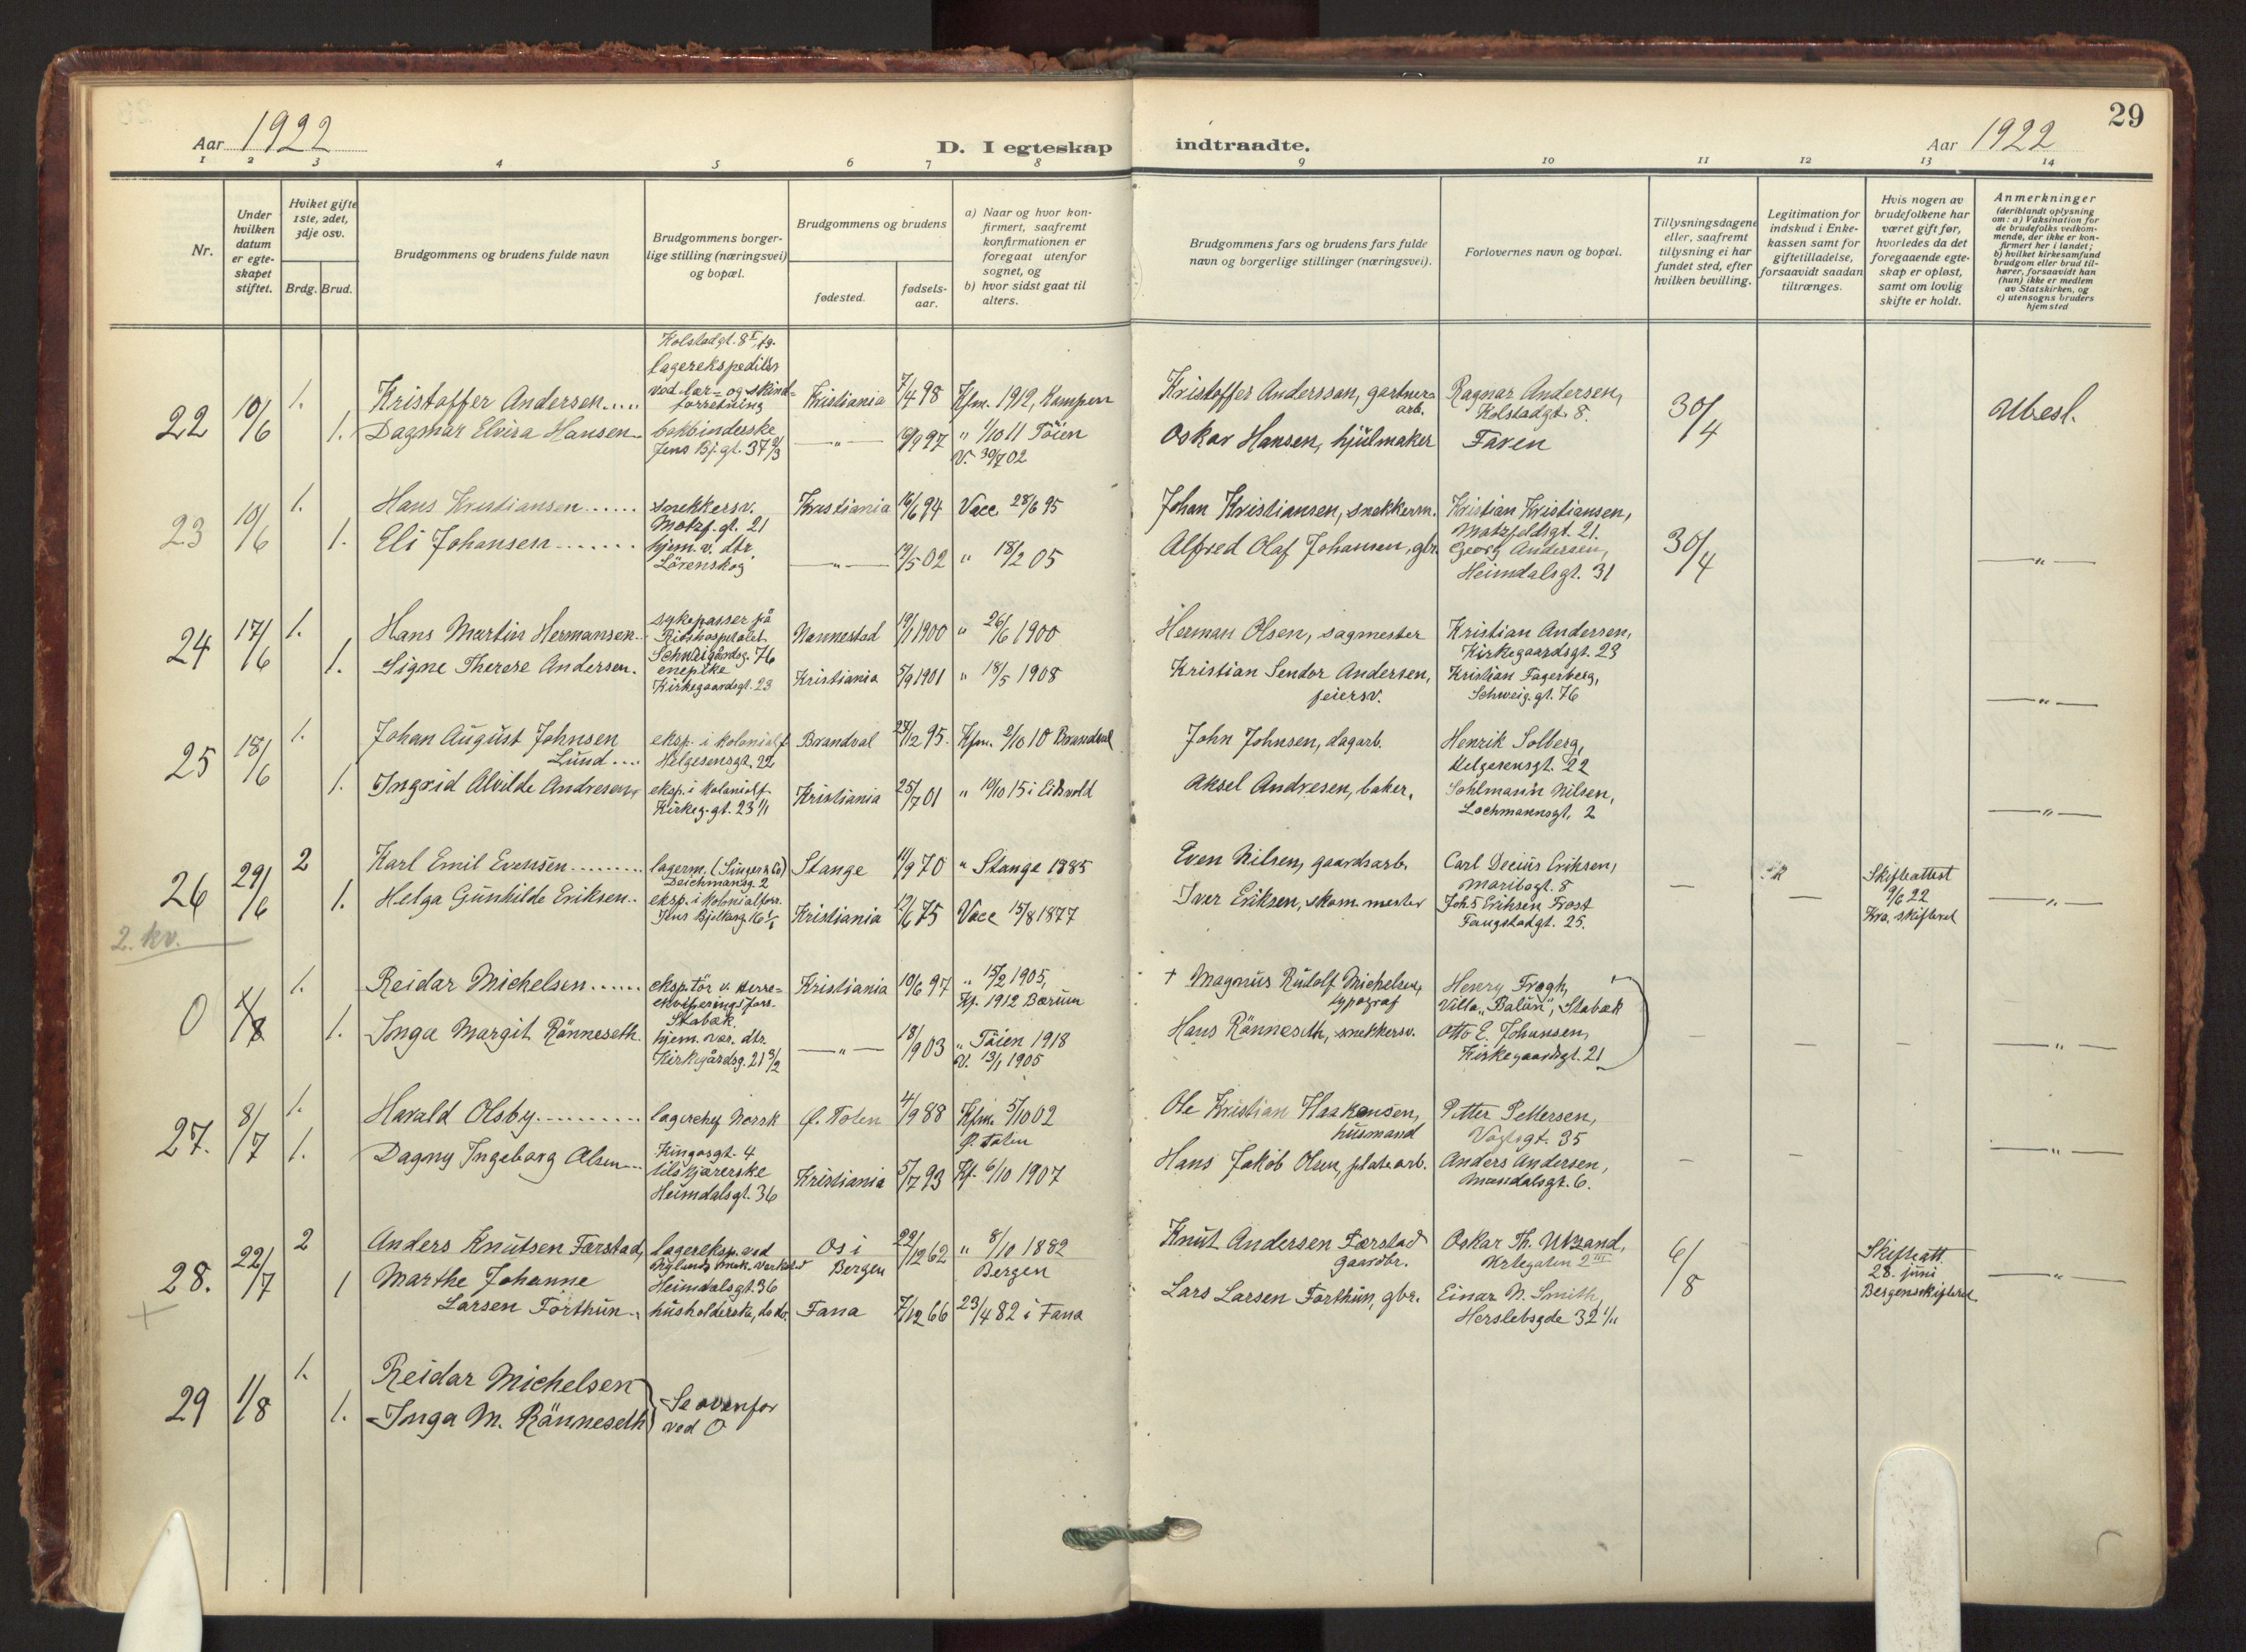 29
Aar 1922
D. I egteskap indtraadte.
Aar 1922
1 2 3 4 5 6 7 8 9 10 11 12 13 14
Nr.
Under hvilken datum er egte-skapet stiftet.
Hviket gifte 1ste, 2det, 3dje osv.
Brdg. Brud.
Brudgommens og brudens fulde navn
Brudgommens borger-lige stilling (næringsvei) og bopæl.
Brudgommens og brudens
fødested.
fødsels-aar.
a) Naar og hvor kon-firmert, saafremt konfirmationen er foregaat utenfor sognet, og
b) hvor sidst gaat til alters.
Brudgommens fars og brudens fars fulde navn og borgerlige stillinger (næringsvei).
Forlovernes navn og bopæl.
Tillysningsdagene eller, saafremt tillysning ei har fundet sted, efter hvilken bevilling.
Legitimation for indskud i Enke-kassen samt for giftetilladelse, forsaavidt saadan tiltrænges.
Hvis nogen av brudefolkene har været gift før, hvorledes da det foregaaende egte-skap er opløst, samt om lovlig skifte er holdt.
Anmerkninger (deriblandt oplysning om: a) Vaksination for de brudefolks vedkom-mende, der ikke er kon-firmert her i landet; b) hvilket kirkesamfund brudgom eller brud til-hører, forsaavidt han (hun) ikke er medlem av Statskirken, og c) utensogns bruders hjemsted
22 10/6
1. Kristoffer Andersen.... Kolstadgt. 8 I, fg. lagerekspeditør ved lær- og skind-forretning Kristiania 7/4 98 Kfm. 1912, Kampen Kristoffer Anderssen, gartner-arb. Ragnar Andersen, Kolstadgt. 8. 30/4 Ubesl.
1. Dagmar Elvira Hansen bokbinderske Jens Bj. gt. 37 II/3 —"— 19/9 97 " 1/10 11 Töien V. 30/7 02 Oskar Hansen, hjulmaker Faren
23 10/6
1. Hans Kristiansen...... snekkersv. Motzf. gt. 21 Kristiania 16/6 94 Vacc 28/6 95 Johan Kristiansen, snekkerm. Kristian Kristiansen, Motzfeldtsgt. 21. 30/4
1. Eli Johansen....... hjem. v. dtr. Lörenskog —"— 19/5 02 " 18/2 05 Alfred Olaf Johansen, gbr. Georg Andersen, Heimdalsgt. 31 —"—
24 17/6
1. Hans Martin Hermansen sykepasser på Rikshospitalet Schweigårdsg. 76 Nannestad 19/1 1900 " 26/6 1900 Herman Olsen, sagmester Kristian Andersen, Kirkegaardsgt. 23
1. Signe Therese Andersen. enepike Kirkegaardsgt. 23 Kristiania 5/9 1901 " 18/5 1908 Kristian Sendor Andersen, feiersv. Kristian Fagerberg, Schweig. gt. 76 —"—
25 18/6
1. Johan August Johnsen Lund... eksp. i kolonialf. Helgesensgt. 22 Brandval 27/12 95. Kfm. 2/10 10 Brandval John Johnsen, dagarb. Henrik Solberg, Helgesensgt. 22
1. Ingrid Alvilde Andresen, eksp. i kolonialf. Kirkeg. gt. 23 1/1 Kristiania 25/7 01 " 10/10 15 i Eidsvold Aksel Andresen, baker. Sohlmann Nilsen, Lochmannsgt. 2 —"—
26 29/6
2 Karl Emil Evensen........ lagerm. (Singer & Co) Deichmansg. 2 Stange 11/9 70 " Stange 1885 Even Nilsen, gaardsarb. Carl Decius Eriksen, Maribogt. 8 — Skifteattest 9/6 22 Kra. skifteret
1. Helga Gunhilde Eriksen.. eksp. i kolonialforr. Jens Bjelkesg. 16 Kristiania 19/6 75 Vacc 15/8 1877 Iver Eriksen, skom. mester Johs Eriksen Frost Faugstadgt. 25. — —"—
2. kv.
0 1/8
1. Reidar Michelsen...... eksp.tör v. Herre-ekviperingsforr. Stabæk. Kristiania 10/6 97 " 15/2 1905, Kf. 1912 Bærum + Magnus Rudolf Michelsen, typograf Henry Frogh, Villa „Balün", Stabæk
1. Inga Margit Rönneseth. hjem. vær. dtr. Kirkegårdsg. 21 3/2 —"— 18/1 903 " Töien 1918 V. 13/1 1905 Hans Rönneseth, snekkersv. Otto E. Johansen, Kirkegaardsgt. 21 — — — —"—
27. 8/7
1. Harald Olsby.......... lagerchef Norsk Kingosgt. 4 Ø. Toten 4/9 88 Kfm. 5/10 02 Ø. Toten Ole Kristian Haakensen, husmand Petter Pettersen, Vogtsgt. 35
1. Dagny Ingeborg Olsen... tilskjærerske Heimdalsgt. 36 Kristiania 5/7 93 Kf. 6/10 1907 Hans Jakob Olsen, platearb. Anders Andersen, Mandalsgt. 6. — — — —"—
28. 22/7
+
2 Anders Knutsen Færstad, lagereksp. ved Nylands mek. verksted Heimdalsgt. 36 Os i Bergen 22/12 62 " 8/10 1882 Bergen Knut Andersen Færstad gaardbr. Oskar Th. Urtegaten 2 III 6/8 Skifteatt. 28. juni Bergensskifteret —"—
1 Marthe Johanne Larsen Forthun.. husholderske, do do. Fana 7/12 66 23/4 82 i Fana Lars Larsen Forthun, gbr. Einar N. Smith, Herslebsgde 32 1/11
29 1/8
1. Reidar Michelsen
1. Inga M. Rönneseth } Se ovenfor ved O